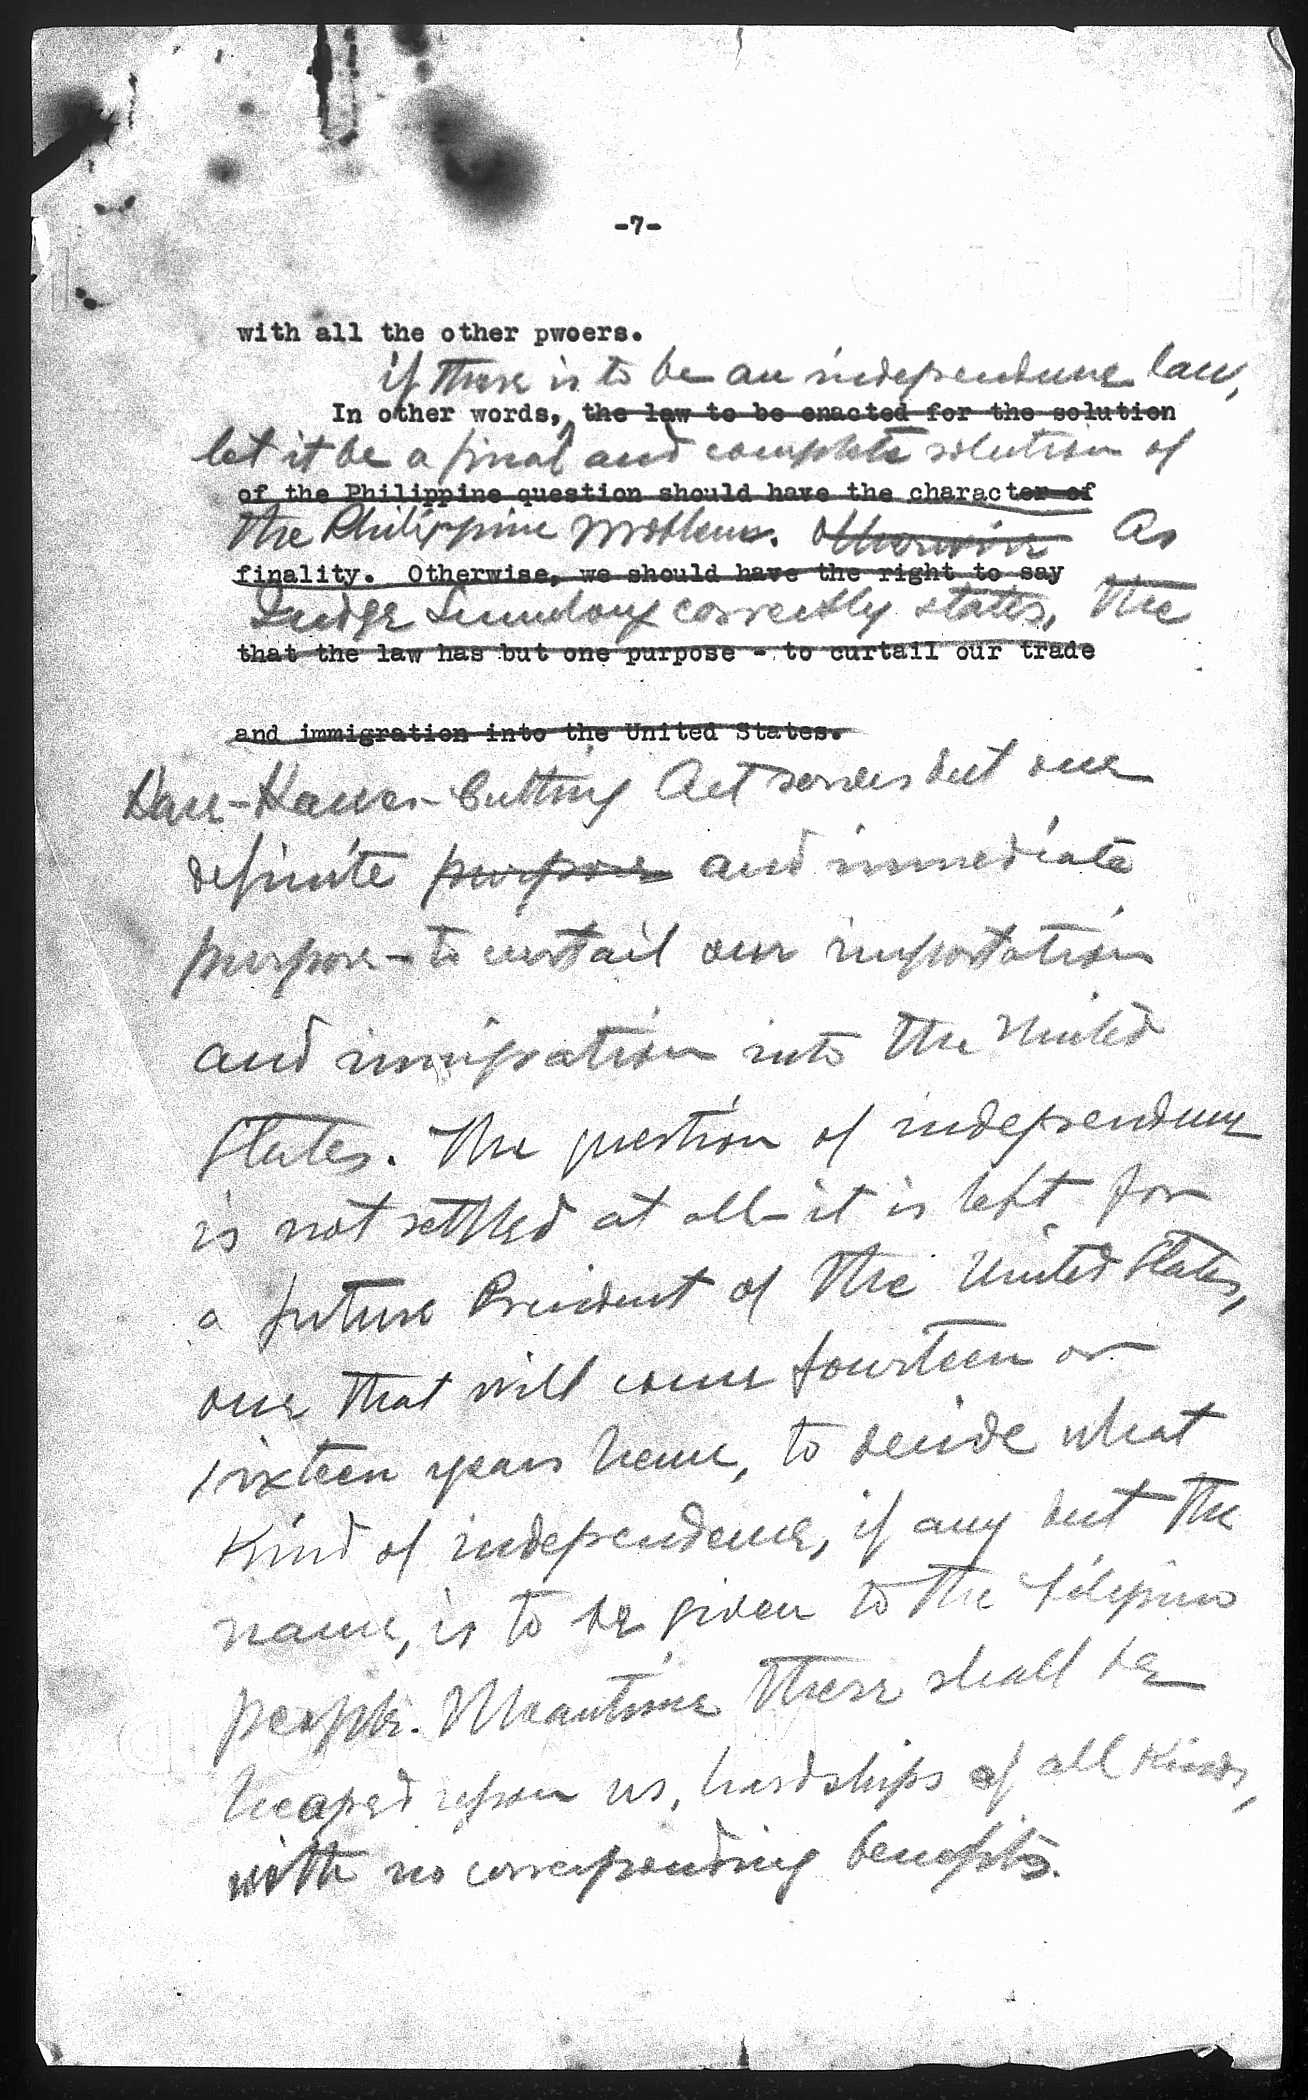 -7-
with all the other pwoers.
if there is to be an independence law,
In other words, the law to be enacted for the solution
let it be a final and complete solution of
of the Philippine question should have the character of
the Philippine problem. Otherwise As
finality. Otherwise, we should have the right to say
Judge correctly states, the
that the law has but one purpose - to curtail our trade
and immigration into the United States.
Hare-Hawes-Cutting Act serves but one
definite purpose and immediate
purpose - to curtail our importation
and immigration into the United
States. The question of independence
is not settled at all - it is left for
a future President of the United States,
one that will come fourteen or
sixteen years hence, to decide what
kind of independence, if any but the
name, is to be given to the Filipino
people. Meantime there shall be
heaped upon us, hardships of all kinds,
with no corresponding benefits.